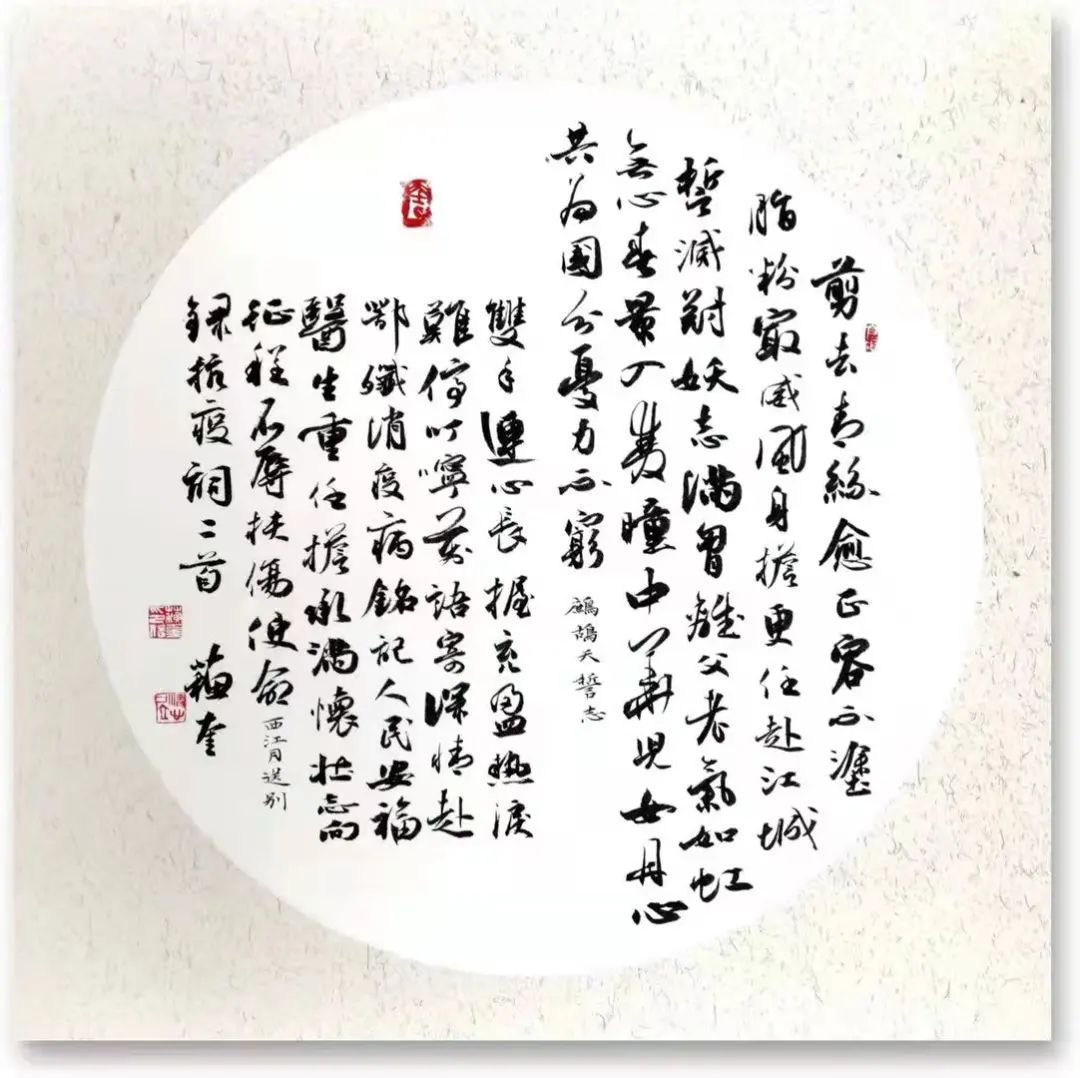 剪去青絲愈正容不塗
脂粉最威風身擔重任赴江城
誓滅妖志滿胷離父老氣如虹
無心春景入雙瞳中華兒女丹心
共為國分憂力不窮
鷓鴣天誓志
雙手連心長握充盈熱淚
難停叮嚀萬語寄深情赴
鄂殲消疫病銘記人民安福
醫生重任擔承滿懷壯志向
征程不辱扶傷使命
西江月送別
録抗疫詞二首
奎